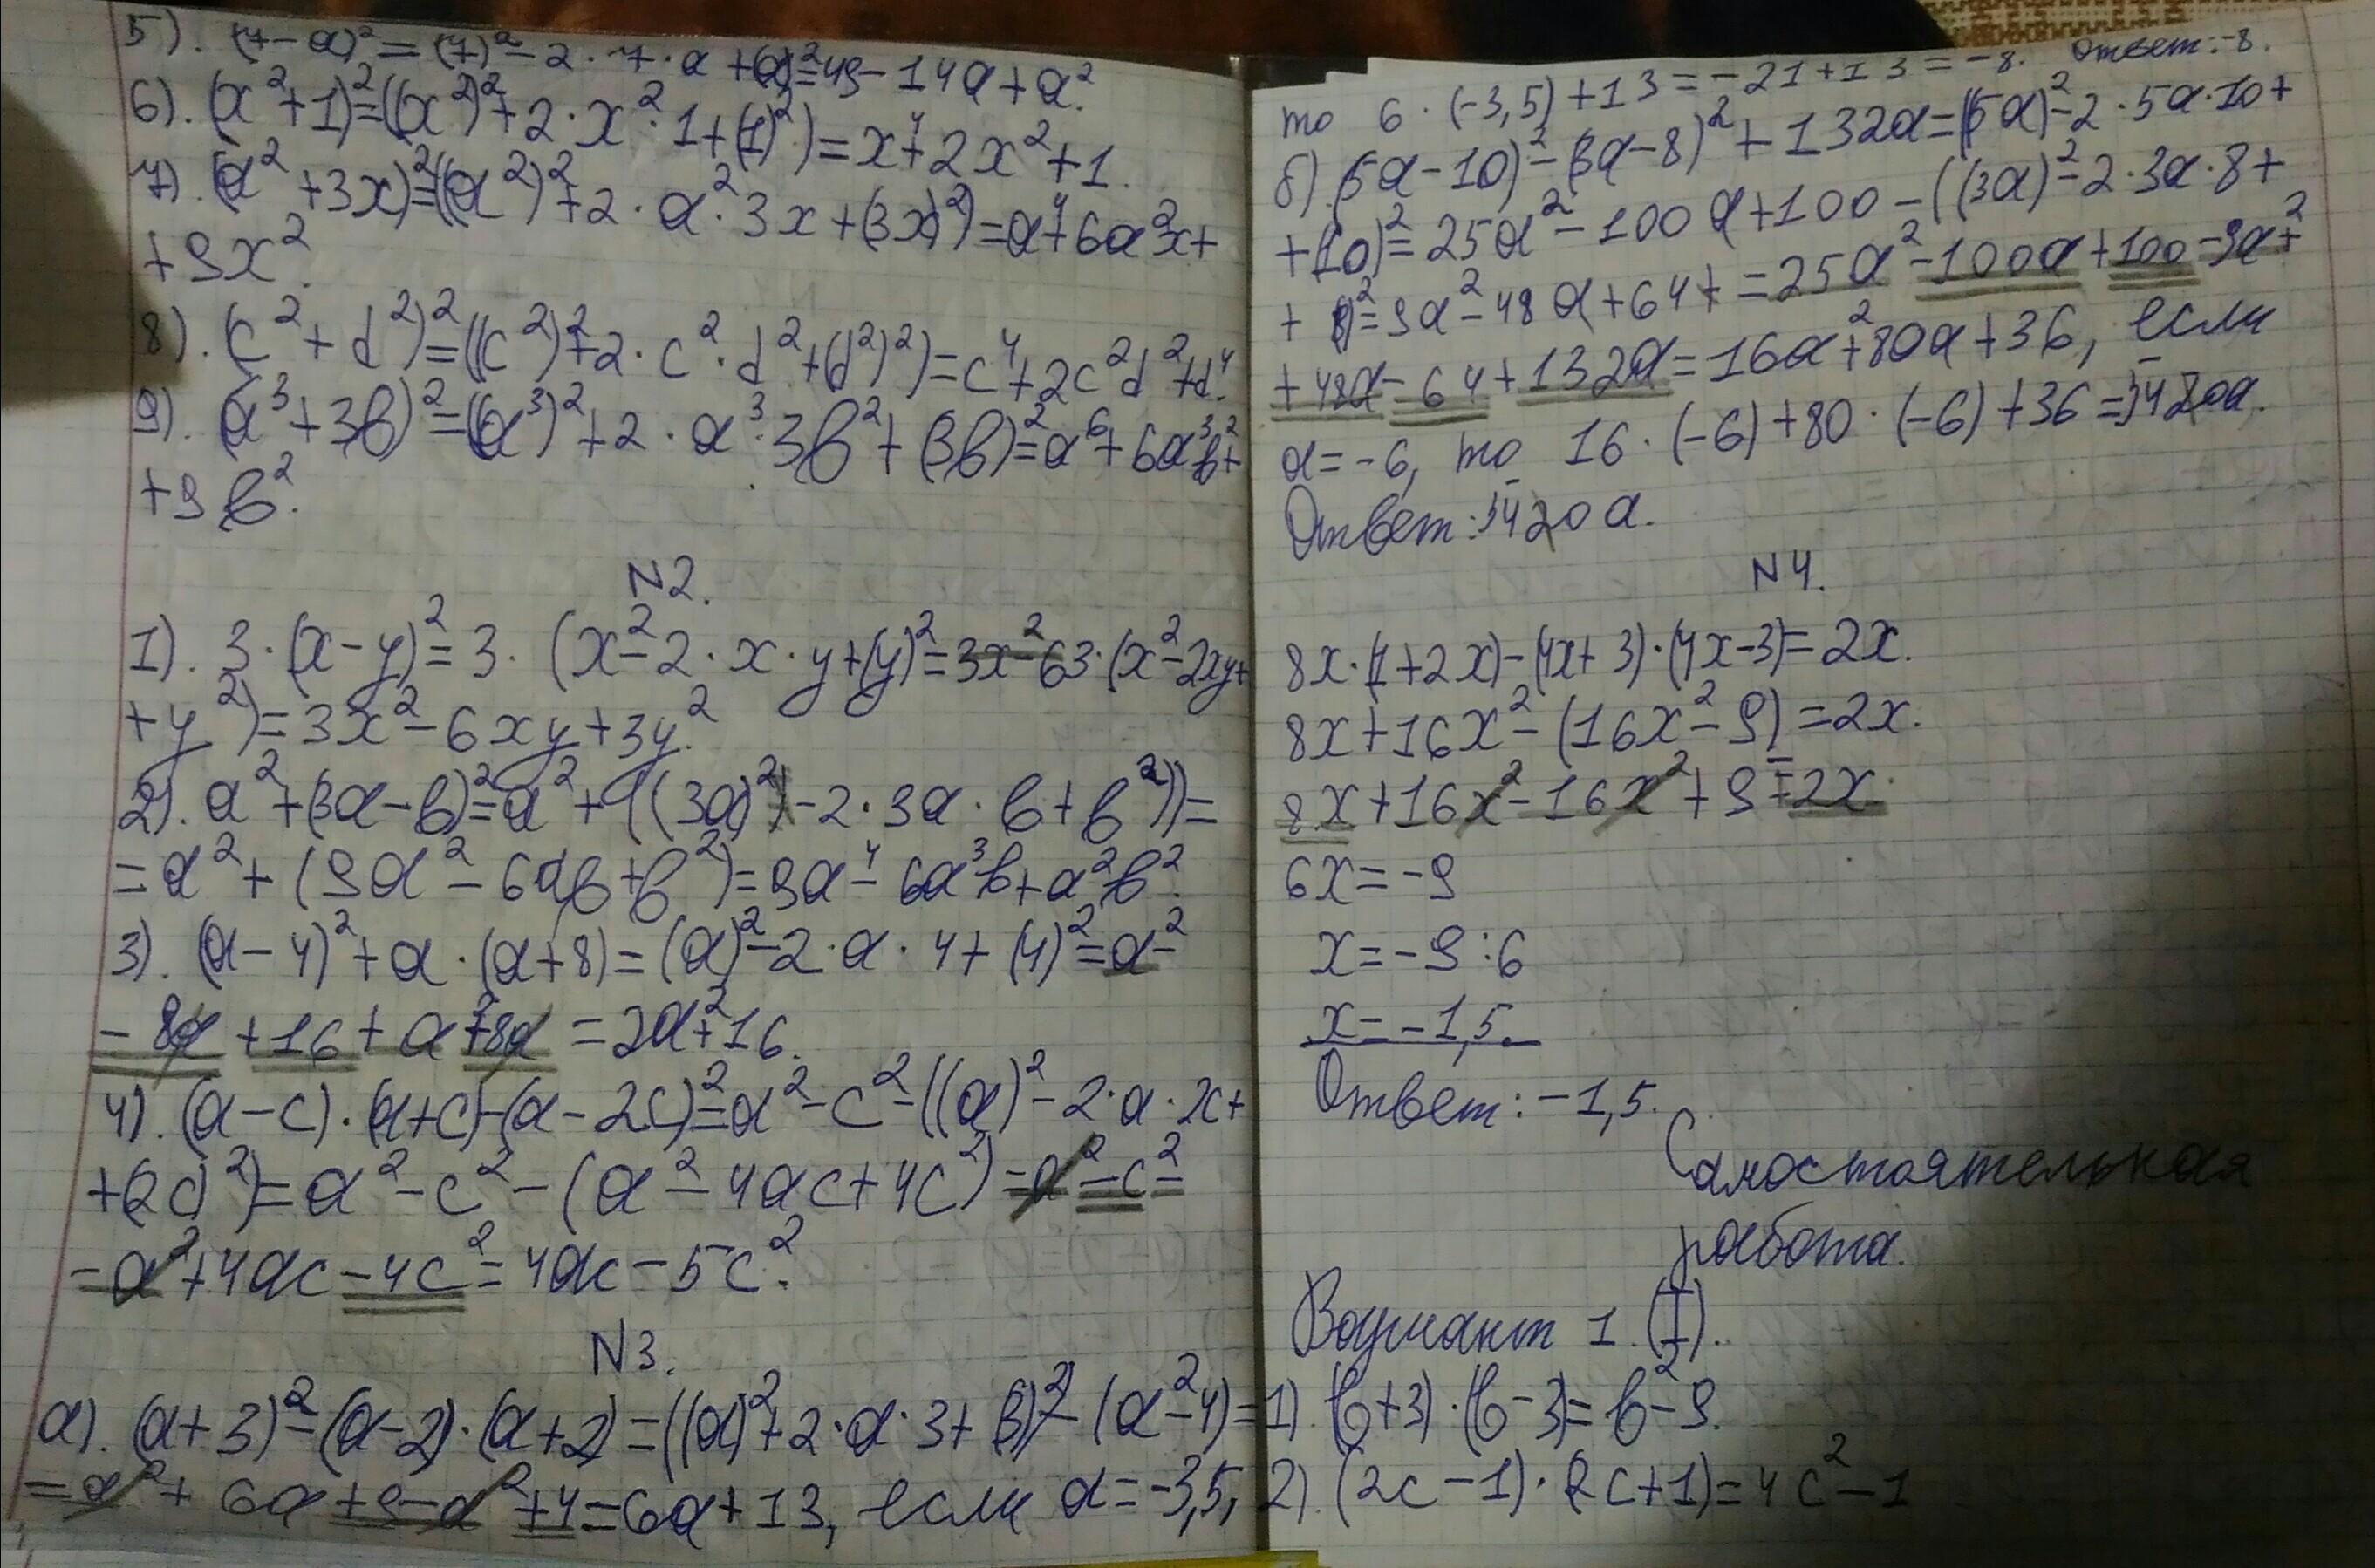 5). (7-a)²=(7)²-2·7·a+(a)²=49-14a+a².
6). (x²+1)²=((x²)²+2·x²·1+(1)²)=x⁴+2x²+1.
7). (a²+3x)²=((a²)²+2·a²·3x+(3x)²)=a⁴+6a²x+
+9x².
8). (c²+d²)²=((c²)²+2·c²·d²+(d²)²)=c⁴+2c²d²+d⁴.
9). (a³+3b)²=((a³)²+2·a³·3b²+(3b)²=a⁶+6a³b²+
+9b².
N2.
1). 3·(x-y)²=3·(x²-2·x·y+(y)²=3x²-63·(x²-2xy+
+y²)=3x²-6xy+3y².
2). a²+(3a-b)²=a²+((3a)²-2·3a·b+b²))=
=a²+(9a²-6ab+b²)=9a⁴-6a³b+a²b².
3). (a-4)²+a·(a+8)=(a)²-2·a·4+(4)²=a²-
-8a+16+a²+8a=2a²+16.
4). (a-c)·(a+c)-(a-2c)²=a²-c²-((a)²-2·a·2c+
+(2c)²)=a²-c²-(a²-4ac+4c²)=a²-c²-
-a²+4ac-4c²=4ac-5c².
N3.
а). (a+3)²-(a-2)·(a+2)=((a)²+2·a·3+(3)²)-(a²-4)=
=a²+6a+9-a²+4=6a+13, если a=-3,5,
то 6·(-3,5)+13=-21+13=-8. Ответ:-8.
б). (5a-10)²-(3a-8)²+132a=((5a)²-2·5a·10+
+(10)²=25a²-100a+100-((3a)²-2·3a·8+
+(8)²=9a²-48a+64+=25a²-100a+100-9a²+
+48a-64+132a=16a²+80a+36, если
a=-6, то 16·(-6)+80·(-6)+36=
Ответ:
N4.
8x·(1+2x)-(4x+3)·(4x-3)=2x.
8x+16x²-(16x²-9)=2x.
8x+16x²-16x²+9=2x.
6x=-9
x=-9:6
x=-1,5.
Ответ:-1,5.
Самостоятельная
работа.
Вариант 1.(I).
1). (b+3)·(b-3)=b²-9.
2). (2c-1)·(2c+1)=4c²-1